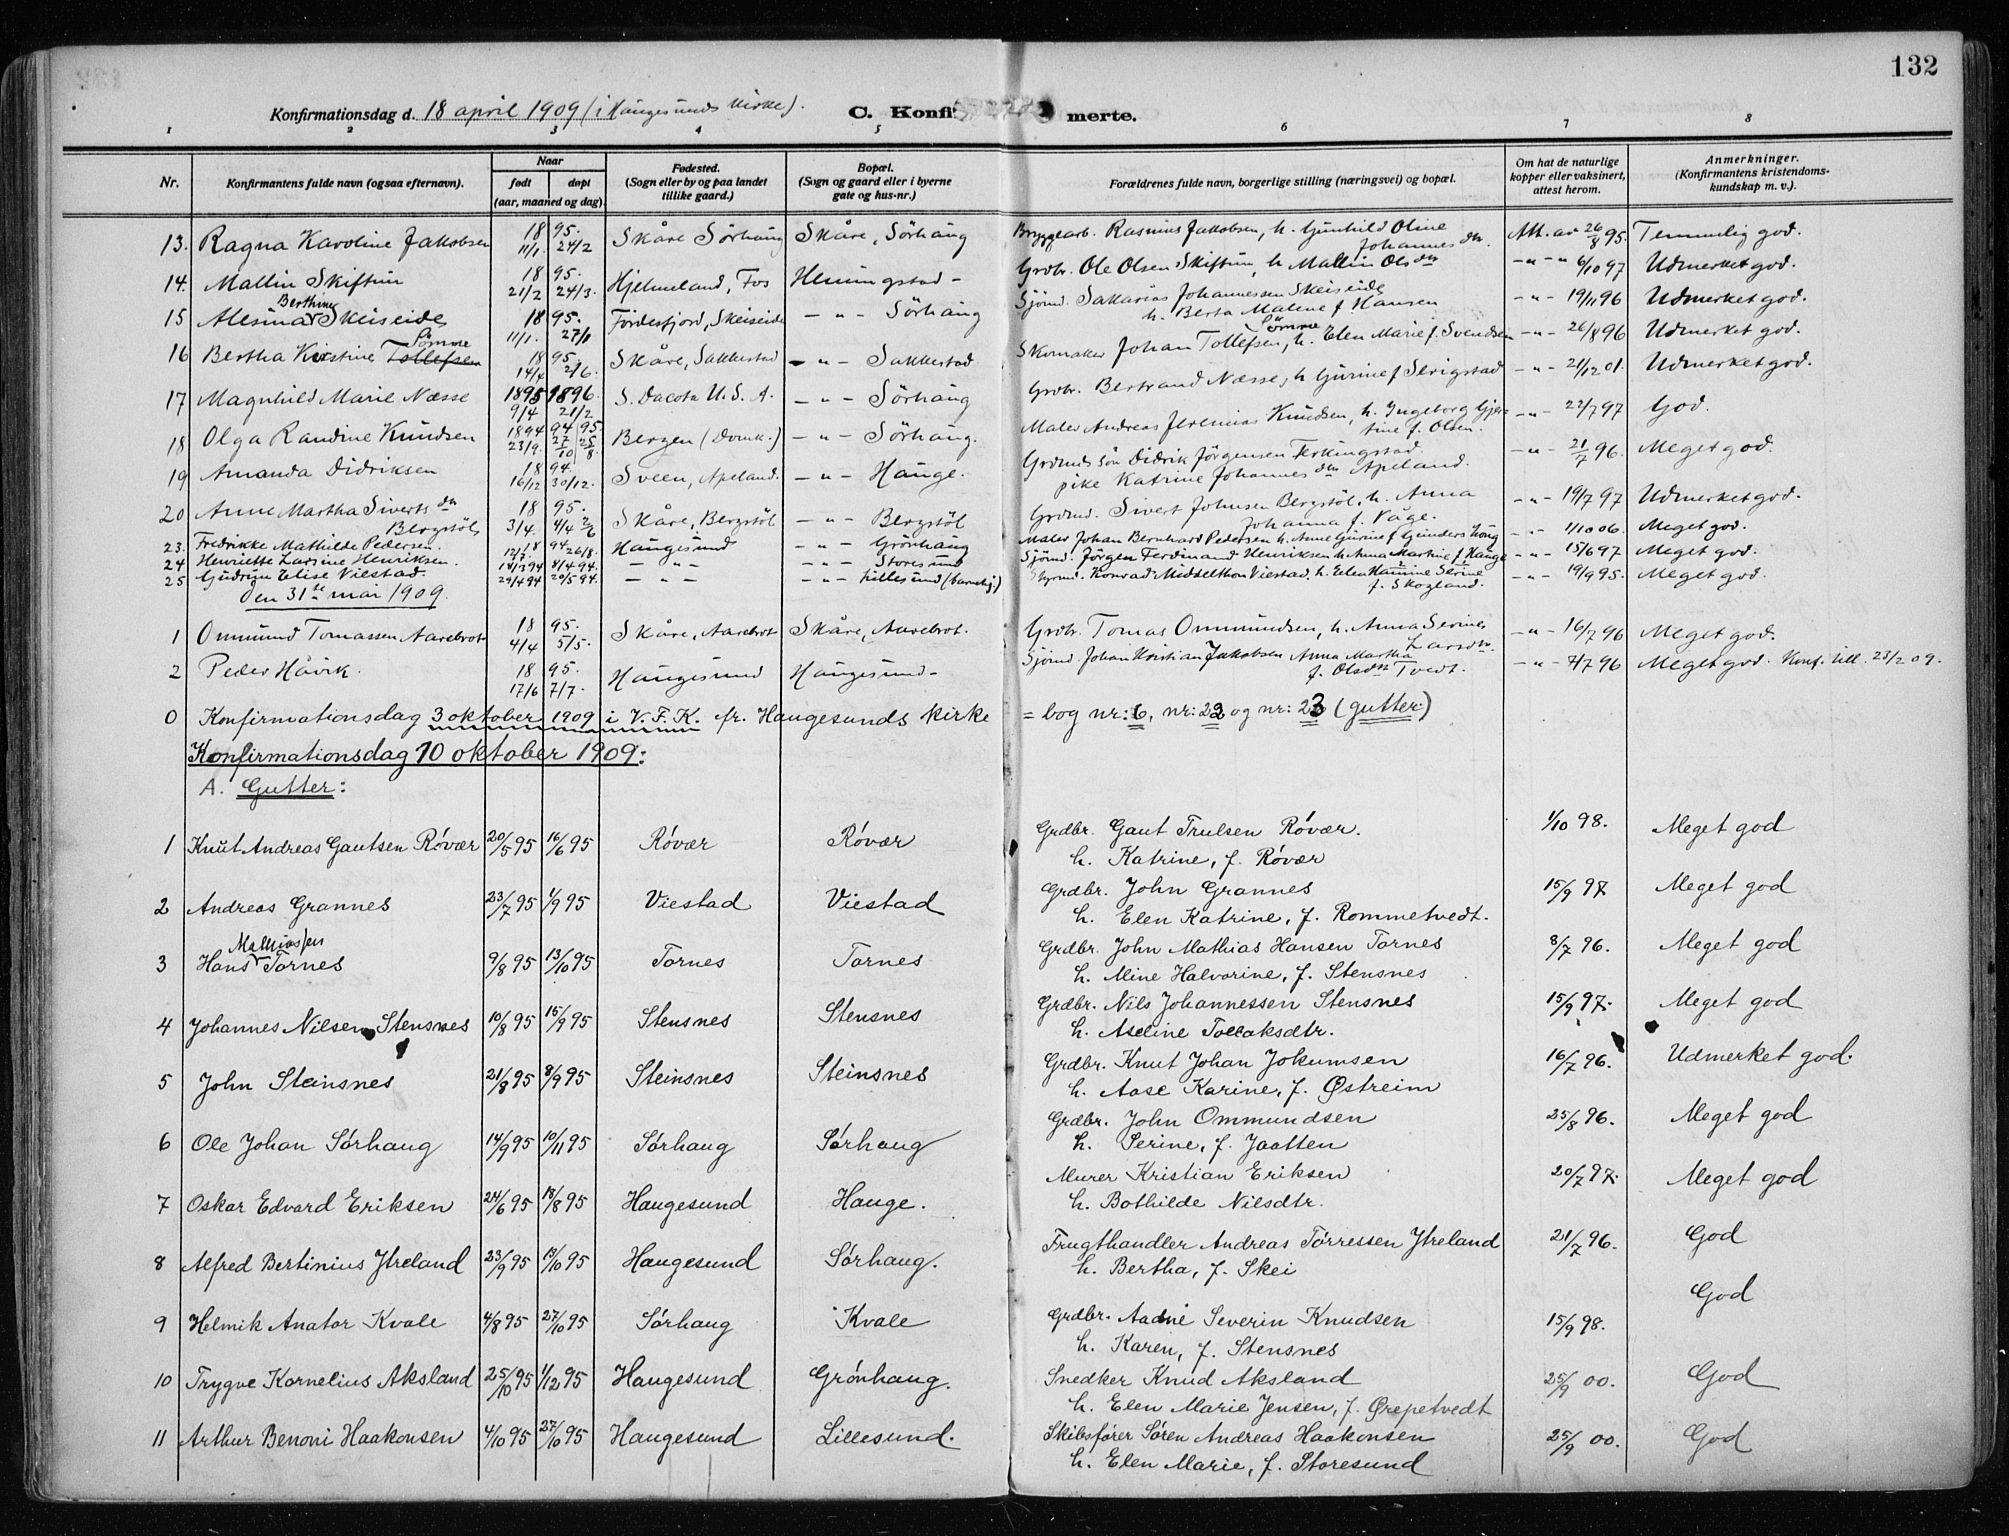 132
Konfirmationsdag d. 18 april 1909 (i Haugesunds kirke).
C. Konfirmerte.
1 2 3 4 5 6 7 8
Nr. Konfirmantens fulde navn (ogsaa efternavn). Naar født døpt (aar, maaned og dag). Fødested. (Sogn eller by og paa landet tillike gaard.) Bopæl. (Sogn og gaard eller i byerne gate og hus-nr.) Forældrenes fulde navn, borgerlige stilling (næringsvei) og bopæl. Om hat de naturlige kopper eller vaksinert, attest herom. Anmerkninger. (Konfirmantens kristendoms-kundskap m. v.).
13. Ragna Karoline Jakobsen 1895. 11/1. 24/2 Skåre Sörhaug Skåre, Sörhaug Bryggearb. Rasmus Jakobsen, h. Gunhild Oline Johannesdtr. Att. av 26/8 95. Temmelig god.
14. Mallin Skiftun 1895. 21/2 24/3. Hjelmeland, Fos Hemingstad - Grdbr. Ole Olsen Skiftun, h. Mallin Olsdtr - " - " 6/10 97 Udmerket god.
15 Alesina Berthine Skeiseide 1895. 11/1. 27/1 Fördesfjord, Skeiseide - " - Sörhaug Sjömd. Sakarias Johannessen Skeiseide h. Berta Malene f. Hansen - " - 19/11 96 Udmerket god.
16 Bertha Kirstine Tollefsen Sömme 1895. 14/4 2/6. Skåre, Sakkestad - " - Sakkestad Skomaker Johan Tollefsen Sömme, h. Elen Marie f. Svendsen - " - 26/8 96 Udmerket god.
17 Magnhild Marie Næsse 1895 1896. 9/4 21/2 S. Dacota U. S. A. - " - Sörhaug Grdbr. Bertrand Næsse, h Gurine f Serigstad - " - 21/12 01. Udmerket god.
18 Olga Randine Knudsen 1894 94 95. 23/9. 27/10 25/8. Bergen (Domk.) - " - Sörhaug. Maler Andreas Jeremias Knudsen, h. Ingeborg Gjertine f. Olsen. - " - 22/7 97 God.
19 Amanda Didriksen 1894. 16/12 30/12. Sveen, Apeland. - " - Hauge. Grdmds sön Didrik Jörgensen Ferkingstad. pike Katrine Johannesdtr Apeland. - " - 21/7 96. Meget god.
20 Anne Martha Sivertsdtr Bergstöl 1895. 3/4. 4/4 2/6 Skåre, Bergstöl - " - Bergstöl Grdmd. Sivert Johnsen Bergstöl, h. Anna Johanna f. Våge. - " - 19/7 97 Udmerket god.
23. Fredrikke Mathilde Pedersen. 1894 12/7. 26/8. Haugesund - " - Grönhaug Maler Johan Bernhard Pedersen h. Anne Gurine f Gunders Kong - " - 1/10 06. Meget god.
24 Henriette Larsine Henriksen. 14/3 94 8/4 94. - " - - " - Storesund Sjömd. Jörgen Ferdinand Henriksen h. Anna Martine f Hauge - " - 15/6 97 Meget god.
25 Gudrun Elise Viestad. 29/4 94 20/5 94. - " - - " - Lillesund (barnehj.) Konrad Middelthon Viestad, h. Elen Serine f. Skogland. - " - 19/9 95. Meget god.
Den 31te mai 1909.
1 Ommund Tomassen Aarebrot 1895. 4/4 5/5. Skåre, Aarebrot Skåre, Aarebrot. Grdbr. Tomas Ommundsen, h. Anna Serine Larsdtr. - " - 16/7 96 Meget god.
2 Peder Håvik. 1895. 17/6 7/7. Haugesund Haugesund - Sjömd. Johan Kristian Jakobsen Anna Martha f. Olsdtr Tvedt. - " - 7/7 96 Meget god. Konf. till. 23/2 09.
0 Konfirmationsdag 3 oktober 1909 i V. F. K. fr. Haugesunds kirke = bog nr: 6, nr: 22 og nr: 23 (gutter)
Konfirmationsdag 10 oktober 1909:
A. Gutter:
1 Knut Andreas Gautsen Róvær 20/5 95 16/6 95 Róvær Róvær Grdbr. Gaut Trulsen Róvær. 1/10 98. Meget god
h. Katrine, f. Róvær
2 Andreas Grannes 23/7 95 1/9 95 Viestad Viestad Grdbr. John Grannes 15/9 97 Meget god
h. Elen Katrine, f. Rommetvedt.
3 Hans Mathiassen Tornes 9/8 95 13/10 95 Tornes Tornes Grdbr. John Mathias Hansen Tornes 8/7 96. Meget god
h. Mine Halvorine, f. Stensnes
4 Johannes Nilsen Stensnes 10/8 95 15/9 95 Stensnes Stensnes Grdbr. Nils Johannessen Stensnes 15/9 97. Meget god
h. Aseline Tollaksdtr.
5 John Steinsnes 21/8 95 8/9 95 Steinsnes Steinsnes Grdbr. Knut Johan Jokumsen 16/7 96. Udmerket god.
h. Aase Karine, f. Østreim
6 Ole Johan Sórhaug 14/9 95 10/11 95 Sórhaug Sórhaug Grdbr. John Ommundsen 25/8 96. Meget god
h. Serine, f. Jaatten
7 Oskar Edvard Eriksen 24/6 95 18/8 95 Haugesund Hauge. Murer Kristian Eriksen 20/7 97. Meget god
h. Bothilde Nilsdtr.
8 Alfred Bertinius Ytreland 23/9 95 13/10 95 Haugesund Sórhaug. Frugthandler Andreas Tórressen Ytreland 21/7 96. God
h. Bertha, f. Skei
9 Helmik Anator Kvale 4/8 95 27/10 95 Sórhaug Kvale Grdbr. Aadne Severin Knudsen 15/9 98. God
h. Karen, f. Stensnes
10 Trygve Kornelius Aksland 25/10 95 1/12 95 Haugesund Grónhaug. Snedker Knud Aksland 25/9 00. God
h. Elen Marie Jensen, f. Ørepetvedt
11 Arthur Benoni Haakonsen 4/10 95 27/10 95 Haugesund Lillesund. Skibsfórer Sóren Andreas Haakonsen 25/9 00. God
h. Elen Marie, f. Storesund